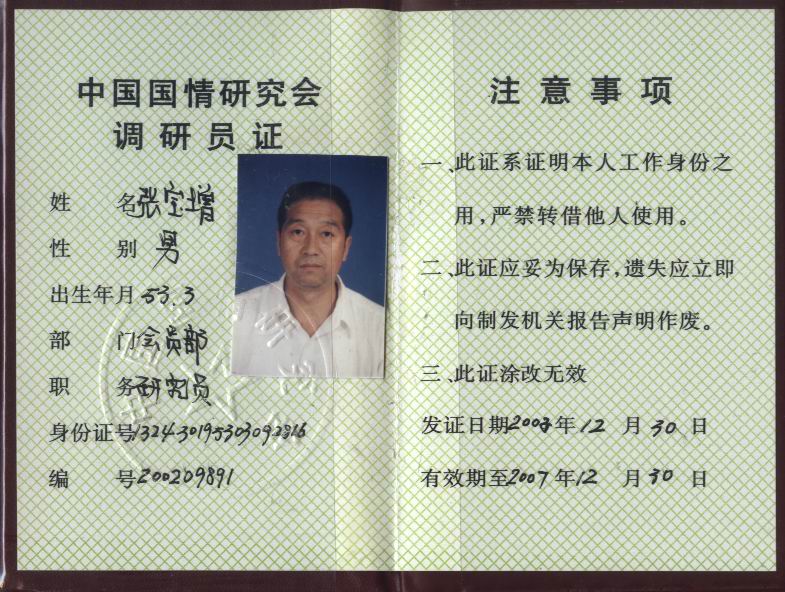 中国国情研究会
调研员证
姓 名 张宝增
性 别 男
出生年月 53.3
部 门 会员部
职 务 研究员
身份证号
编 号 200209891
注意事项
一、此证系证明本人工作身份之
用，严禁转借他人使用。
二、此证应妥为保存，遗失应立即
向制发机关报告声明作废。
三、此证涂改无效
发证日期 2003 年 12 月 30 日
有效期至 2007 年 12 月 30 日